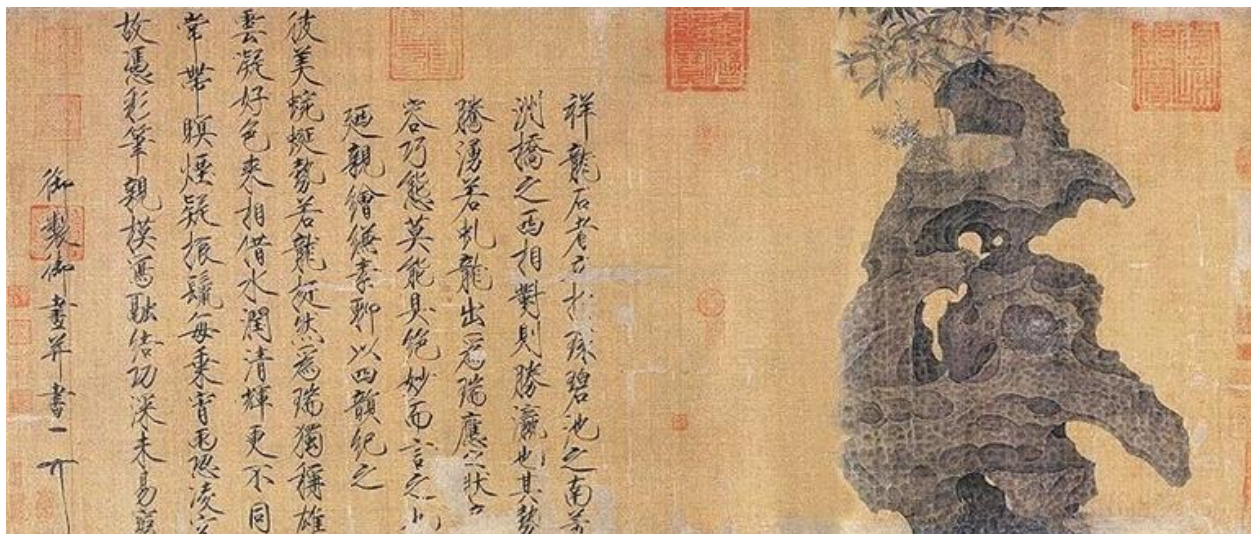 祥龍石者立於環碧池之南芳
洲橋之西相對則勝瀛也其勢
騰湧若虬龍出為瑞應之狀
容巧態莫能具絕妙而言之
廼親繪縑素聊以四韻紀之
彼美蜿蜒勢若龍挺然為瑞獨稱雄
雲凝好色來相借水潤清輝更不同
常帶暝煙疑振鬣每乘宵雨恐凌空
故憑彩筆親模寫融結功深未易窮
御製御畫并書